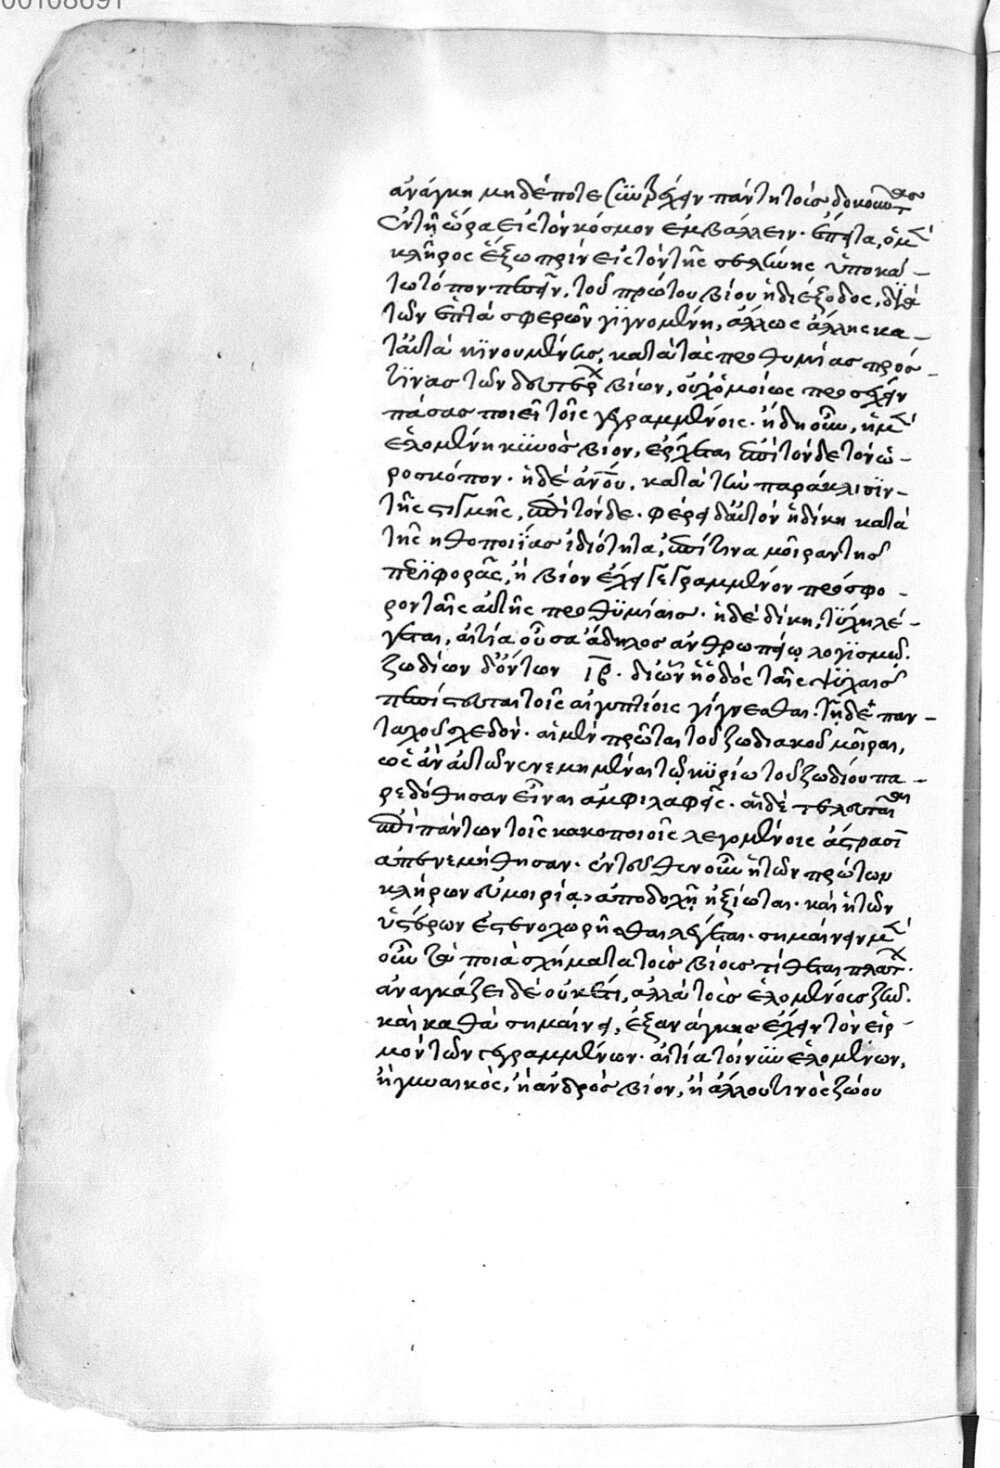 00108691
ἀνάγκη μηδέποτε συντρέχειν πάντῃ τοῖς δοκοῦσιν
ἐν τῇ ὥρα εἰς τὸν κόσμον ἐμβάλλειν. ἔπειτα, ὁ μὲν
κλῆρος ἔξω πρὶν εἰς τὸν τῆς σελήνης ὑποκά-
τω τόπον πεσεῖν, τοῦ πρώτου βίου ἡ διέξοδος, διὰ
τῶν ἑπτὰ σφερῶν γϊγνομένη, ἄλλως ἄλλης κα-
ταυτὰ κϊνουμένης, κατὰ τὰς προθυμίας πρός
τϊνας τῶν δευτέρων βίων, οὐχ ὁμοίως προσέχειν
πάσας ποιεῖ τοῖς γεγραμμένοις. ἤδη οὖν, ἡ μὲν
ἑλομένη κϋνὸς βίον, ἔρχεται ἐπὶ τόνδε τὸν ὡ-
ροσκόπον. ἡ δὲ ἀνου, κατὰ τὴν παράκλισϊν
τῆς στιγμῆς, ἐπὶ τόνδε. φέρει δ' αὐτὸν ἡ δίκη κατὰ
τῆς ἠθοποιΐας ἰδιότητα, ἐπί τινα μοῖραν τῆς
περϊφορᾶς, ἡ βίον ἔχει γεγραμμένον πρόσφο-
ρον ταῖς αὐτῆς προθϋμίαις. ἡ δὲ δίκη, τύχη λέ-
γεται, αἰτία οὖσα ἄδηλος ἀνθρωπείῳ λογϊσμῷ.
ζωδίων δ' ὄντων ιβ. δι' ὧν ἡ ὁδὸς ταῖς ψϋχαῖς
πεπίστευται τοῖς αἰγυπτίοις γίγνεσθαι. τῇδε παν-
ταχοῦ σχεδόν. αἱ μὲν πρῶται τοῦ ζωδιακοῦ μοῖραι,
ὡς ἂν αὐτῶν νενεμημέναι τῷ κϋρίω τοῦ ζωδίου πα-
ρεδόθησαν εἶναι ἀμφιλαφεῖς. αἱ δὲ τελευταῖαι
ἐπὶ πάντων τοῖς κακοποιοῖς λεγομένοις ἄστρασϊ
ἀπενεμήθησαν. ἐντεῦθεν οὖν ἡ τῶν πρώτων
κλήρων εὐμοιρία, ἀποδοχῇ ἠξίωται. καὶ ἡ τῶν
ὑστέρων ἐστενοχωρῆσθαι λέγεται. σημαίνειν μὲν
οὖν τὰ ποιὰ σχήματα τοὺς βίους τίθεται πλάτων.
ἀναγκάζει δὲ οὐκέτι, ἀλλὰ τοὺς ἑλομένους ζῶν.
καὶ καθὰ σημαίνει, ἐξανάγκης ἔχειν τὸν εἱρ-
μὸν τῶν γεγραμμένων. αἰτία τοίνϋν ἑλομένων,
ἢ γυναικὸς, ἢ ἀνδρὸς βίον, ἢ ἄλλου τινὸς ζώου